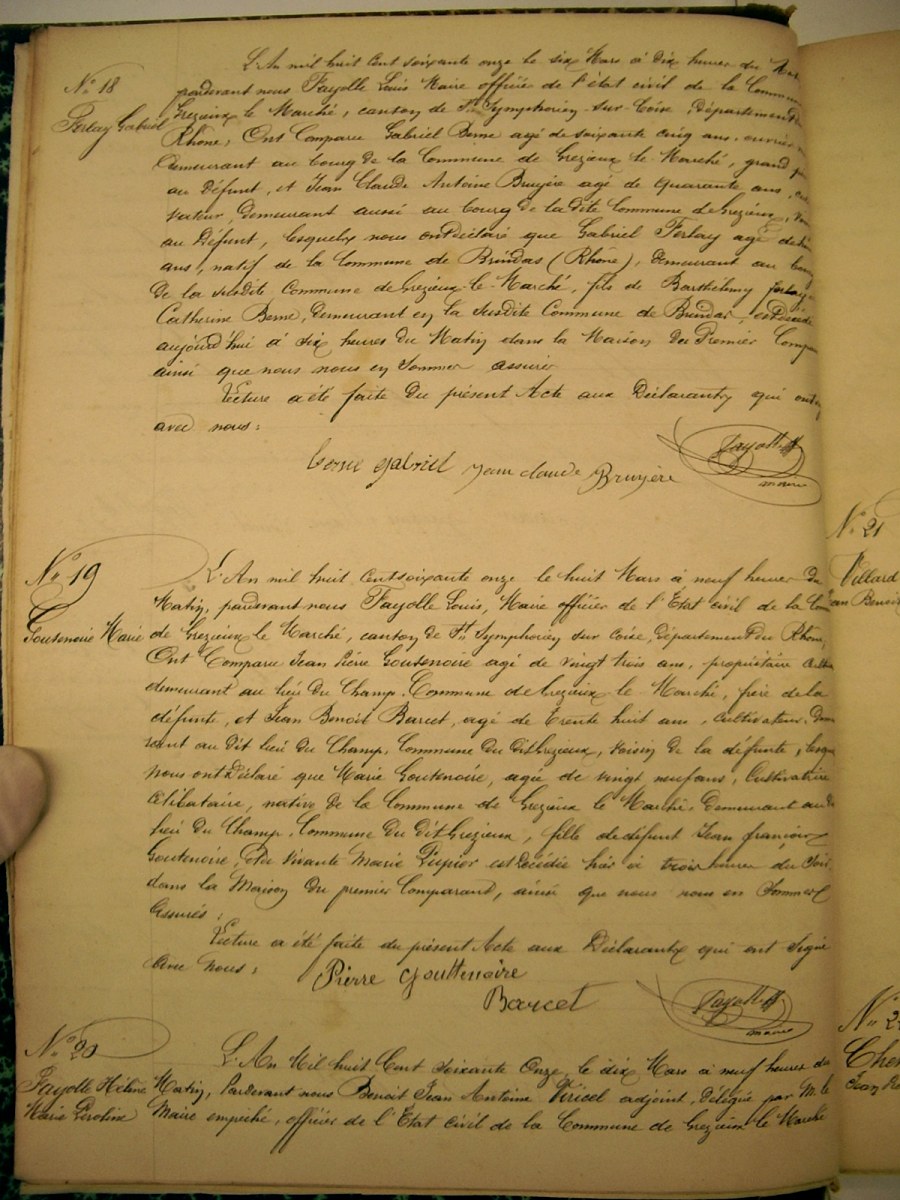 N° 18
Ferlay Gabriel
L'An mil huit cent soixante onze le six Mars à dix heures du
pardevant nous Fayolle Louis Maire officier de l'état civil de la Commune
Grezieux le Marché, canton de St Symphorien sur Coise, Département du
Rhône, Ont Comparu Gabriel Berne agé de soixante cinq ans,
demeurant au bourg de la Commune de Grezieux le Marché, grand
au Défunt, et Jean Claude Antoine Bruyère agé de quarante ans,
demeurant aussi au bourg de la dite Commune de Grezieux,
au Défunt, lesquels nous ont déclaré que Gabriel Ferlay agé de
ans, natif de la Commune de Brindas (Rhône), demeurant au
de la susdite Commune de Grezieux-le-Marché, fils de Barthélemy Ferlay
Catherine Berne, demeurant en la susdite Commune de Brindas, est décédé
aujourd'hui à six heures du Matin dans la Maison du Premier
ainsi que nous nous en sommes assuré
Lecture a été faite du présent Acte aux Déclarants qui ont
avec nous:
Berne gabriel jean claude Bruyère Fayolle
maire
N° 19
Goutenoire Marie
L'An mil huit cent soixante onze le huit Mars à neuf heures du
Matin, pardevant nous Fayolle Louis, Maire officier de l'Etat civil de la
de Grezieux le Marché, canton de St Symphorien sur Coise, Département du Rhône,
Ont Comparu Jean Pière Goutenoire agé de vingt trois ans, propriétaire
demeurant au lieu du Champ, Commune de Grezieux le Marché, frère de la
défunte, et Jean Benoit Barcet, agé de trente huit ans, cultivateur,
rant au dit lieu du Champ, Commune du dit Grezieux, voisin de la défunte,
nous ont déclaré que Marie Goutenoire, agée de vingt neuf ans, Cultivatrice
Célibataire, native de la Commune de Grezieux le Marché, demeurant au
lieu du Champ, Commune du dit Grezieux, fille de défunt Jean françois
Goutenoire, et de vivante Marie est décédée hier à trois heures du soir
dans la Maison du premier Comparant, ainsi que nous nous en sommes
assurés:
Lecture a été faite du présent Acte aux Déclarants qui ont signé
avec nous: Pierre Gouttenoire
Barcet Fayolle
maire
N° 20
Fayolle Hélène
Marie
L'An Mil huit Cent Soixante Onze, le dix Mars à neuf heures du
Matin, Pardevant nous Benoit Jean Antoine Viricel adjoint, Délégué par M. le
Maire empêché, officier de l'Etat civil de la Commune de Grezieux le Marché
N° 21
Villard
Benoit
N°